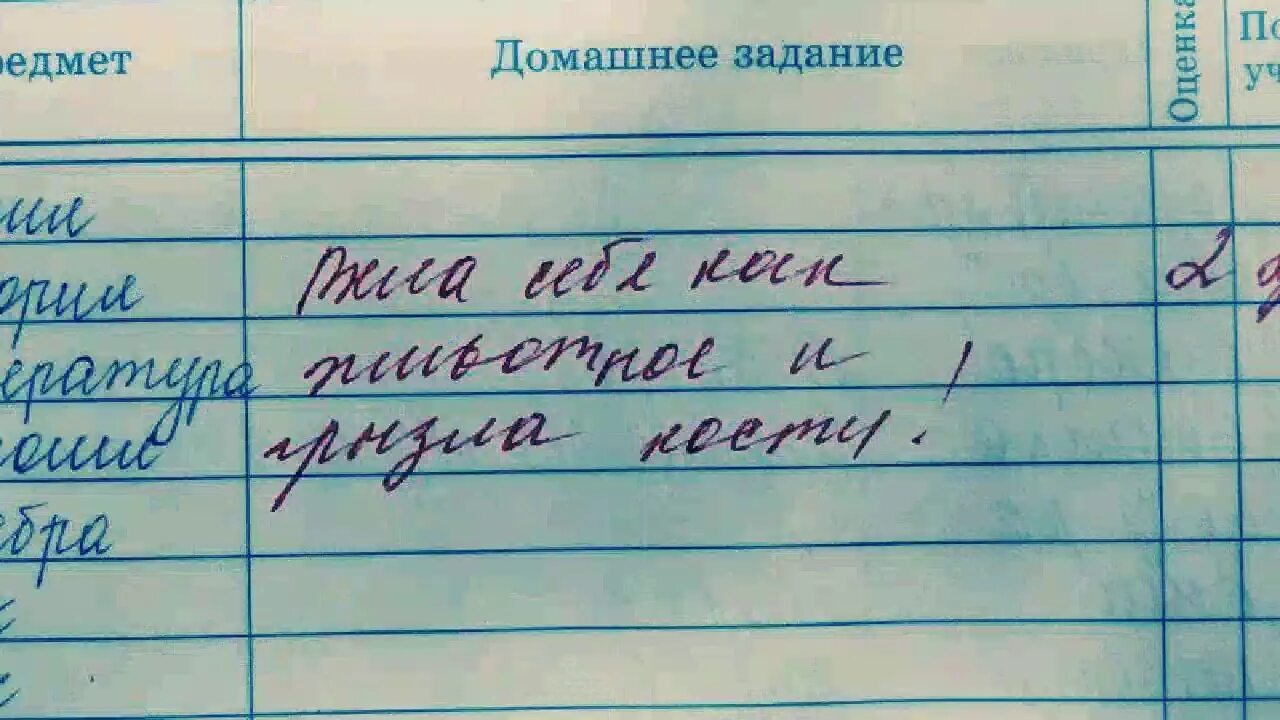 редмет Домашнее задание Оценка По уч
ория Ржла себя как 2
ература животное и
грызла кости!
ебра